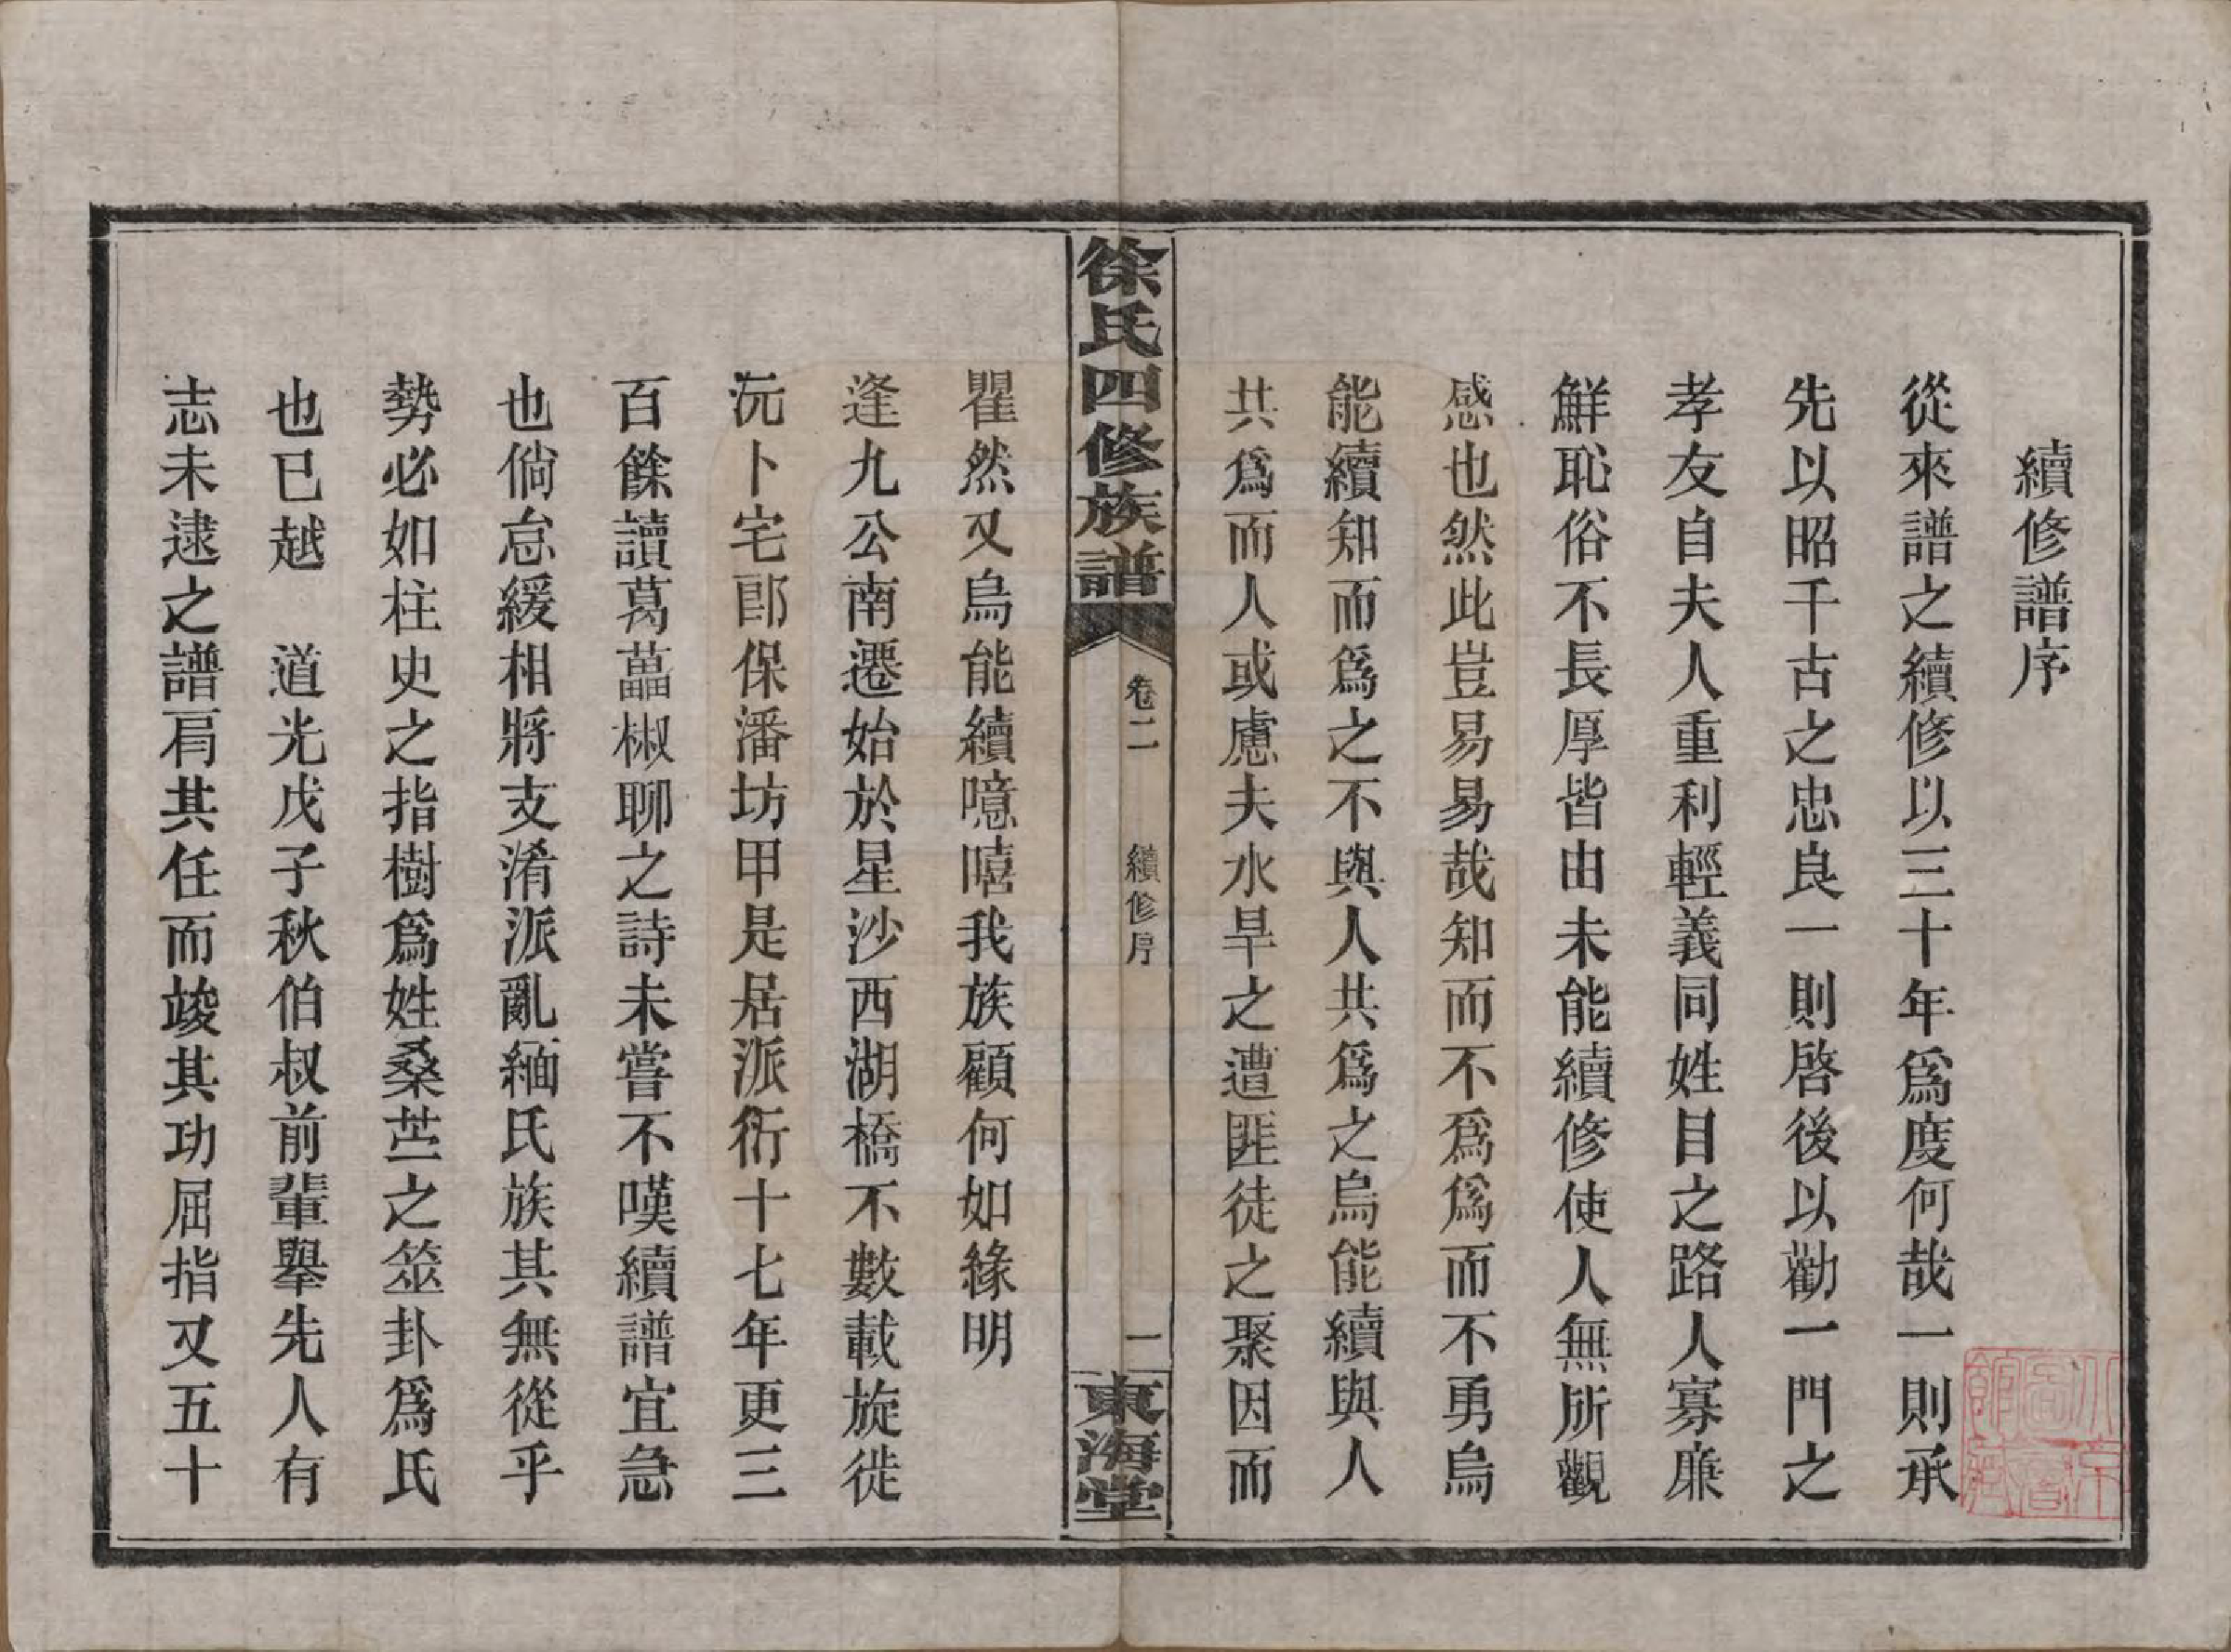 續修譜序
從來譜之續修以三十年爲度何哉一則承
先以昭千古之忠良一則啓後以勸一門之
孝友自夫人重利輕義同姓目之路人寡廉
鮮恥俗不長厚皆由未能續修使人無所觀
感也然此豈易易哉知而不爲爲而不勇烏
能續知而爲之不與人共爲之烏能續與人
共爲而人或慮夫水旱之遭匪徒之聚因而
徐氏四修族譜
卷二
續修序
一
東海堂
瞿然又烏能續噫嘻我族顧何如緣明
逢九公南遷始於星沙西湖橋不數載旋徙
沅卜宅郎保潘坊甲是居派衍十七年更三
百餘讀葛藟椒聊之詩未嘗不嘆續譜宜急
也倘怠緩相將支淆派亂緬氏族其無從乎
勢必如柱史之指樹爲姓桑苎之筮卦爲氏
也已越 道光戊子秋伯叔前輩舉先人有
志未逮之譜肩其任而竣其功屈指又五十
北京圖書館藏